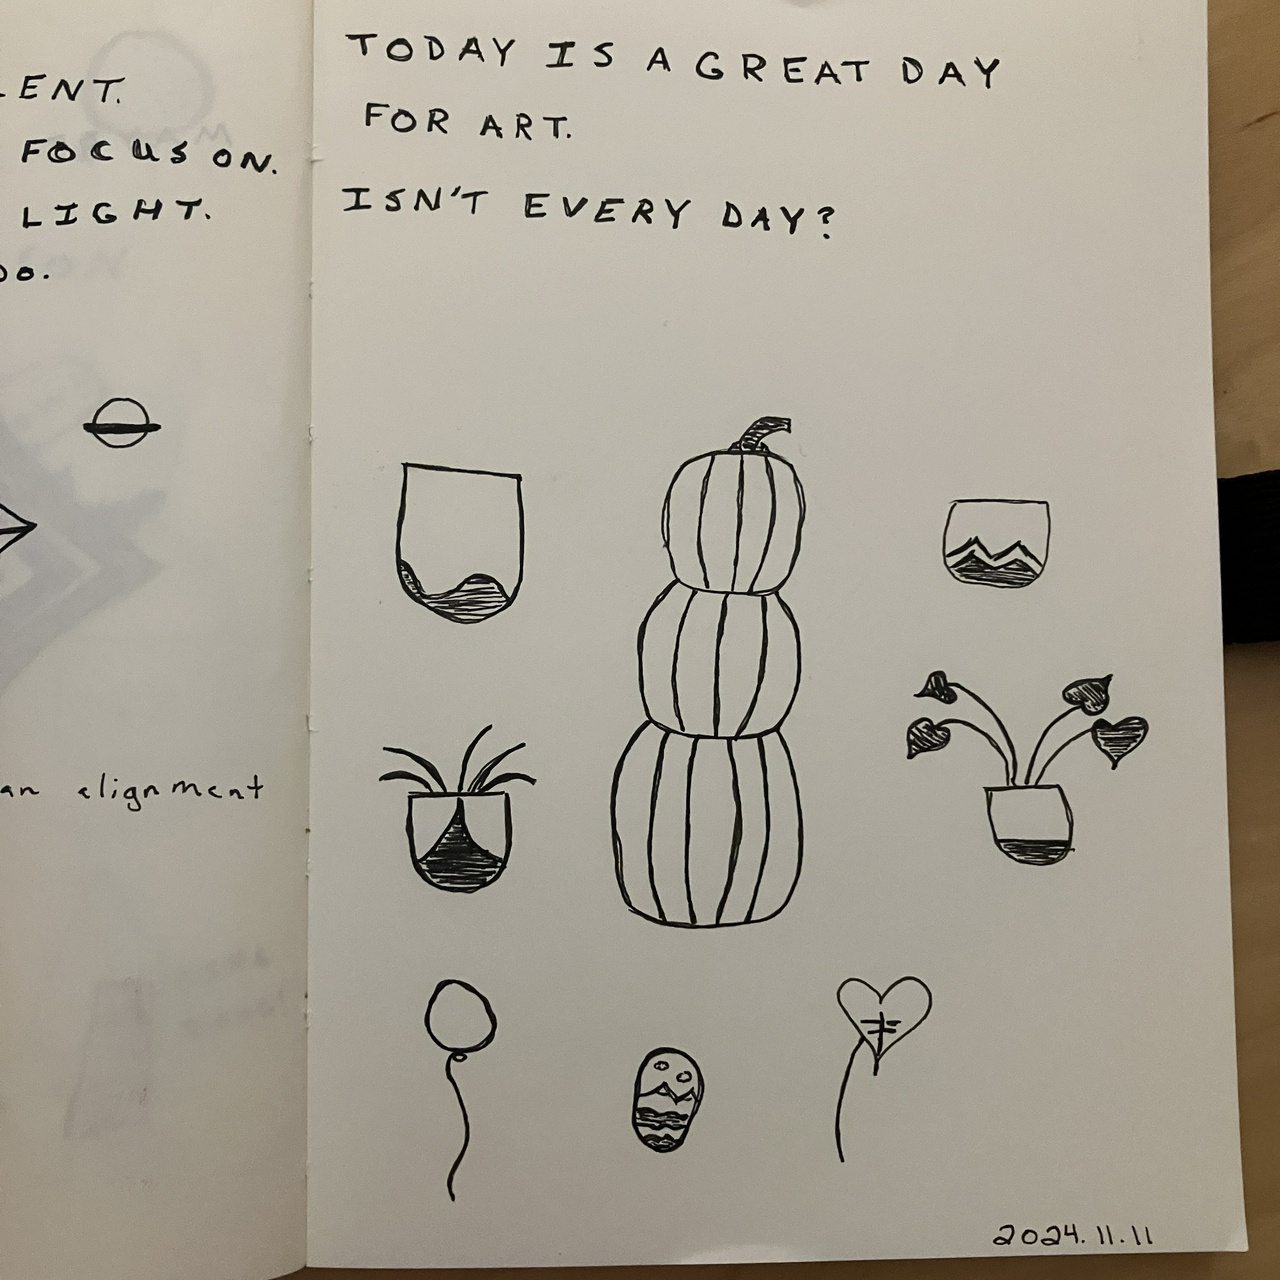 ENT.
FOCUS ON.
LIGHT.
an alignment
TODAY IS A GREAT DAY
FOR ART.
ISN'T EVERY DAY?
2024.11.11